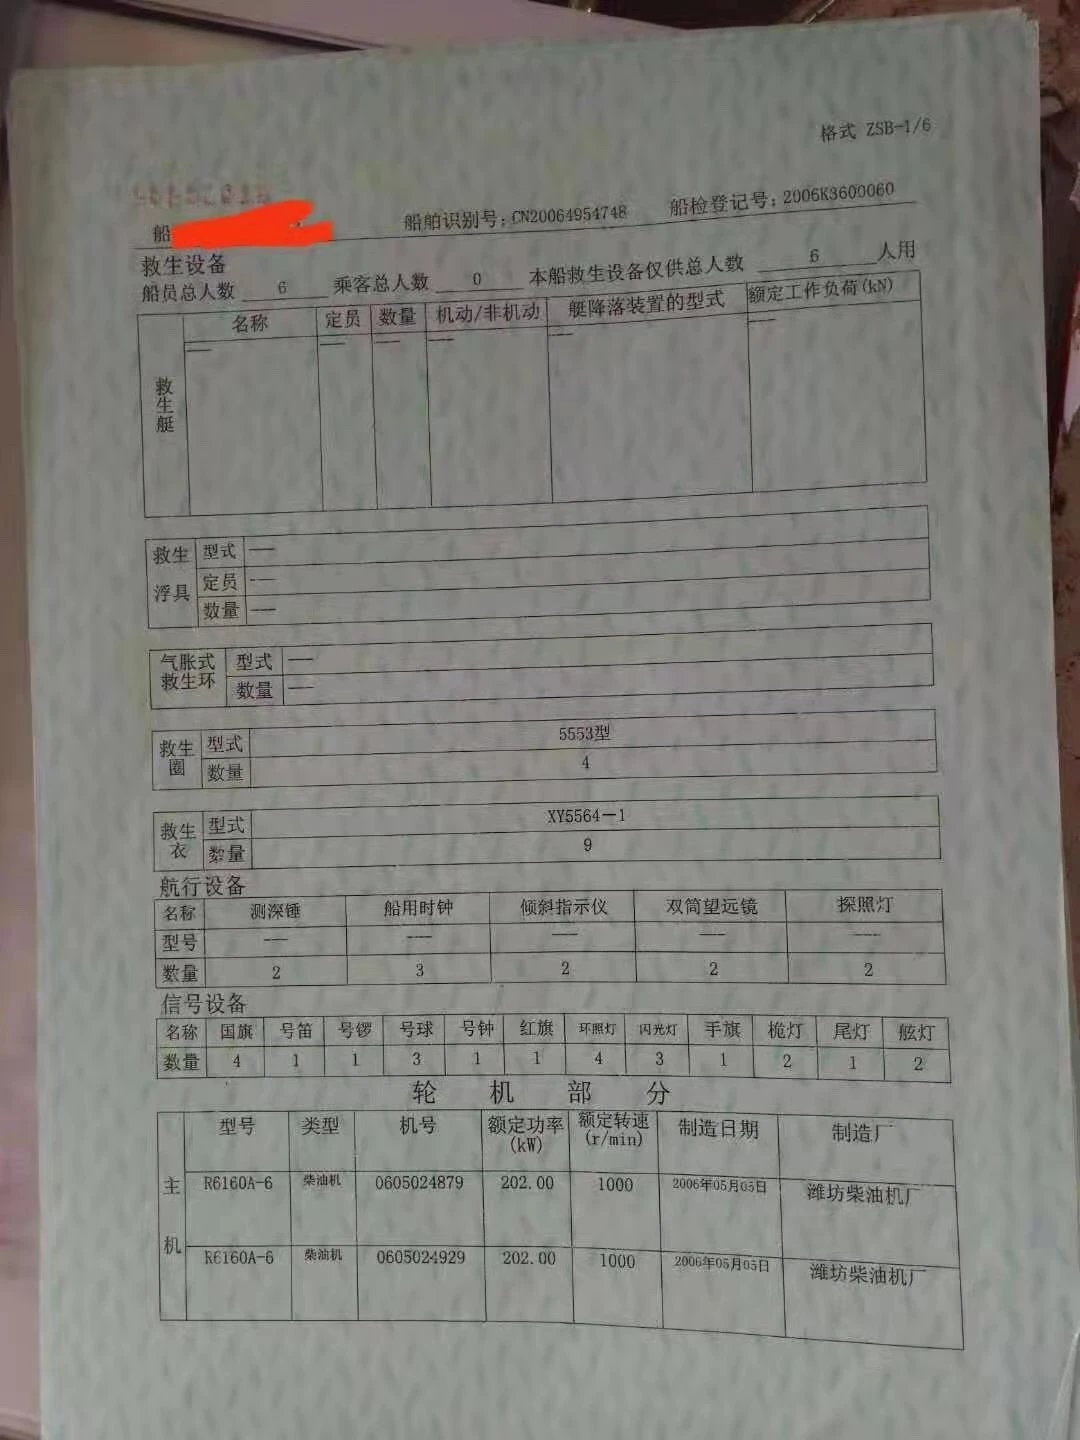 格式 ZSB-1/6
船
船舶识别号：CN20064954748
船检登记号：2006K3600060
救生设备
船员总人数 6 乘客总人数 0 本船救生设备仅供总人数 6 人用
救生艇
名称 定员 数量 机动/非机动 艇降落装置的型式 额定工作负荷(kN)
— — — — — —
救生浮具
型式 —
定员 —
数量 —
气胀式救生环
型式 —
数量 —
救生圈
型式 5553型
数量 4
救生衣
型式 XY5564-1
数量 9
航行设备
名称 测深锤 船用时钟 倾斜指示仪 双筒望远镜 探照灯
型号 — — — — —
数量 2 3 2 2 2
信号设备
名称 国旗 号笛 号锣 号球 号钟 红旗 环照灯 闪光灯 手旗 桅灯 尾灯 舷灯
数量 4 1 1 3 1 1 4 3 1 2 1 2
轮机部分
主机
型号 类型 机号 额定功率(kW) 额定转速(r/min) 制造日期 制造厂
R6160A-6 柴油机 0605024879 202.00 1000 2006年05月05日 潍坊柴油机厂
R6160A-6 柴油机 0605024929 202.00 1000 2006年05月05日 潍坊柴油机厂